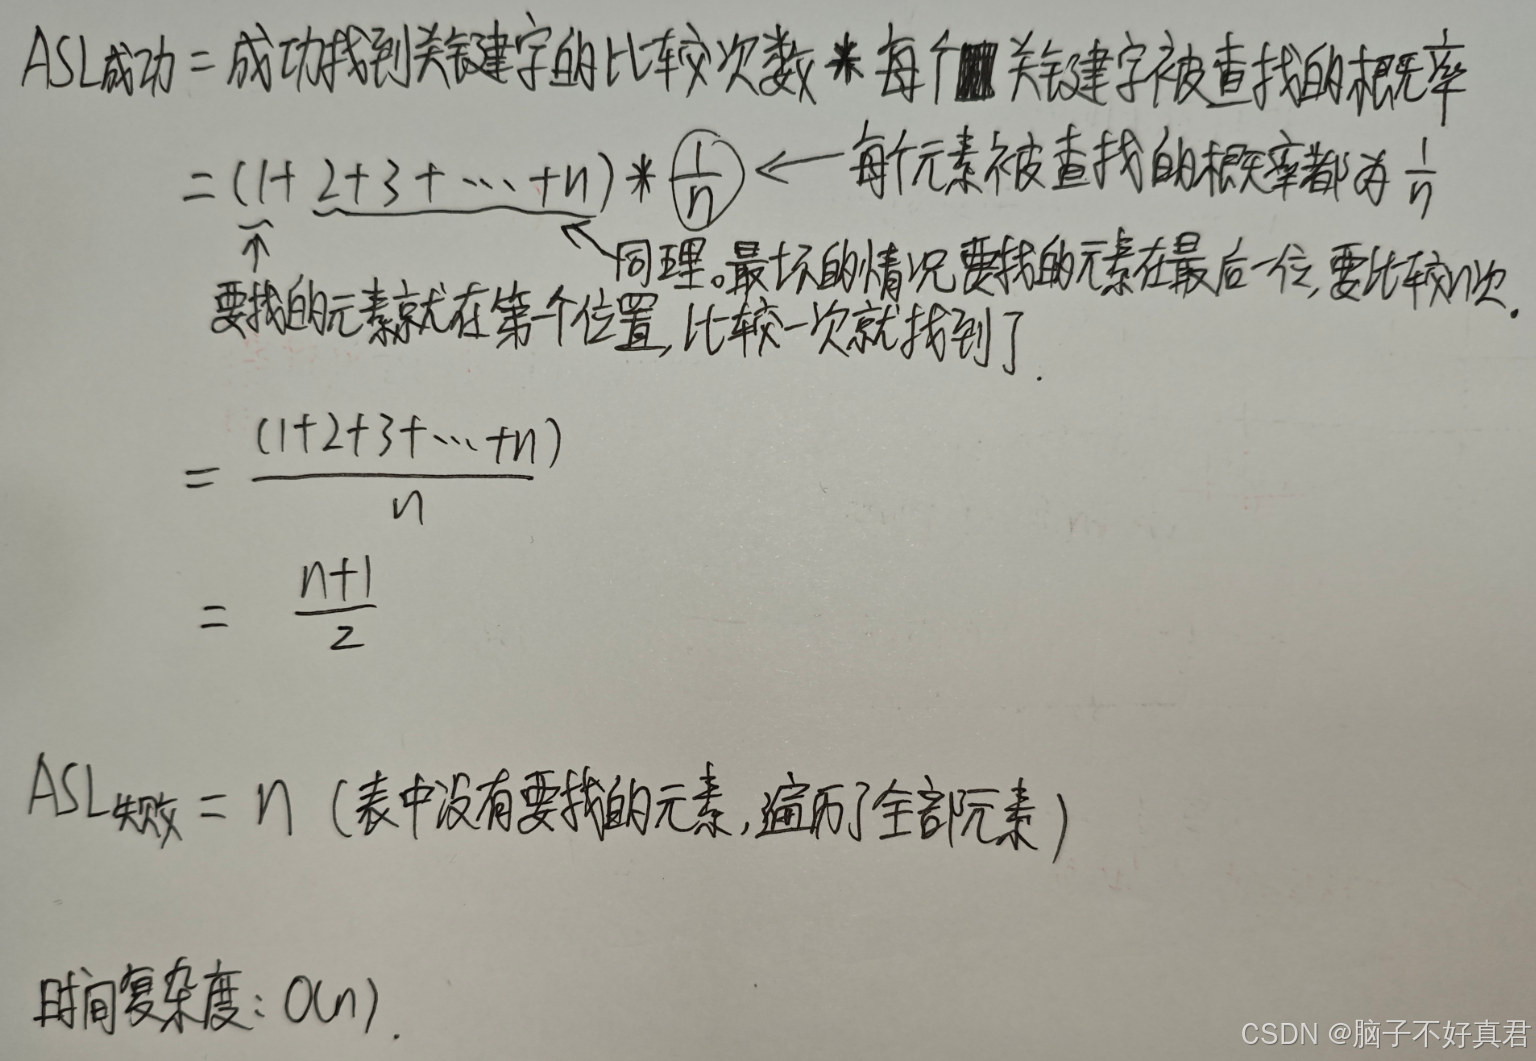 ASL成功 = 成功找到关键字的比较次数 * 每个关键字被查找的概率
= (1+2+3+…+n) * 1/n ← 每个元素被查找的概率都为 1/n
同理。最坏的情况要找的元素在最后一位,要比较n次.
要找的元素就在第一个位置,比较一次就找到了.
= (1+2+3+…+n)/n
= n+1/2
ASL失败 = n (表中没有要找的元素,遍历了全部元素)
时间复杂度: O(n).
CSDN @脑子不好真君